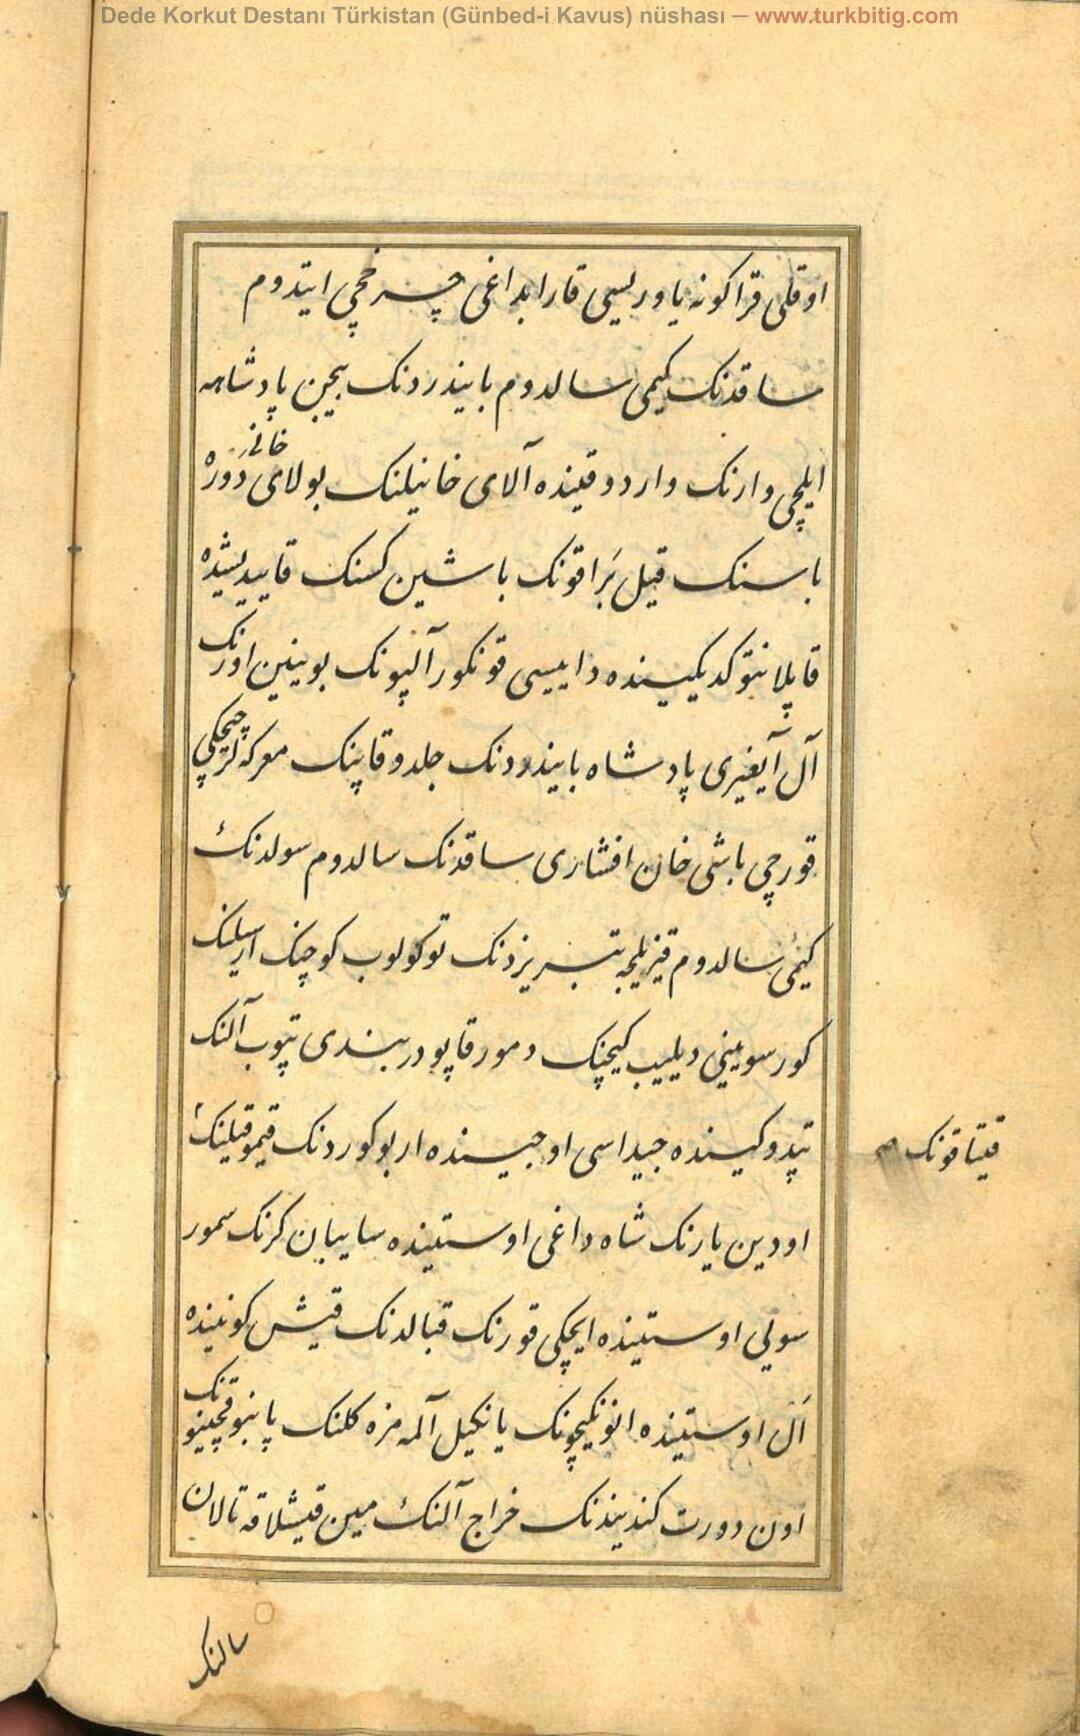 Dede Korkut Destanı Türkistan (Günbed-i Kavus) nüshası — www.turkbitig.com
اوقلی قراکونه یاورلسیی قارابداغی چرخچی ایتدوم
ساقدنک کیمی سالدوم بایندردنک بیجین پادشاهه
خانی
ایلچی وارنک واردوقینده آلای خانیلنک بولای دَوَره
باسنک قیل بَراقونک باشین کسنک قاییدیشیده
قاپلانتو کدیکینده داییسی قونکور آلپونک بوینین اورنک
آل آیغیری پادشاه بایندردنک جلدو قاپنک معرکه لر چیچکی
قورچی باشی خان افشاری ساقدنک سالدوم سولدنک
کیمی سالدوم قیزیلجه تبریزدنک توکولوب کوچنک ارسلنک
کور سویینی دیلییب کیچنک دمور قاپو دربندی تپوب آلنک
تپدوکینده جیداسی اوجیسنده اربوکوردنک قیموقیلنک
قیتاقونک
اودین یارنک شاه داغی اوستینده سایبان کرنک سمور
سویی اوستینده ایچکی قورنک قبالدنک قیش کونینده
اَل اوستینده انونکیچونک یانکیل آلمه مزه کلنک پانبوقچینو تنک
اون دورت کندیندنک خراج آلنک مین قیشلاقه تالان
سالنک